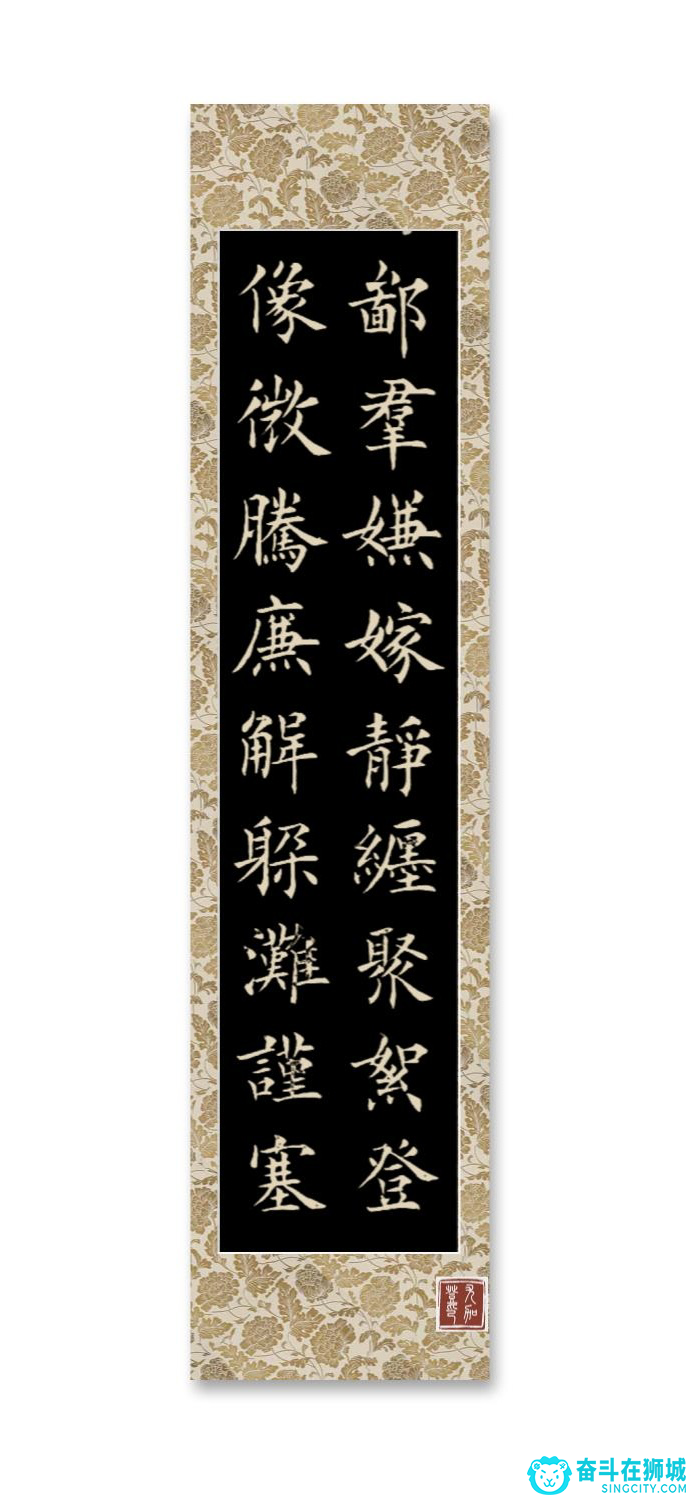 鄙羣嫌嫁靜纏聚絮登
像微騰廉解躲灘謹塞
奋斗在狮城
SINGCITY.COM